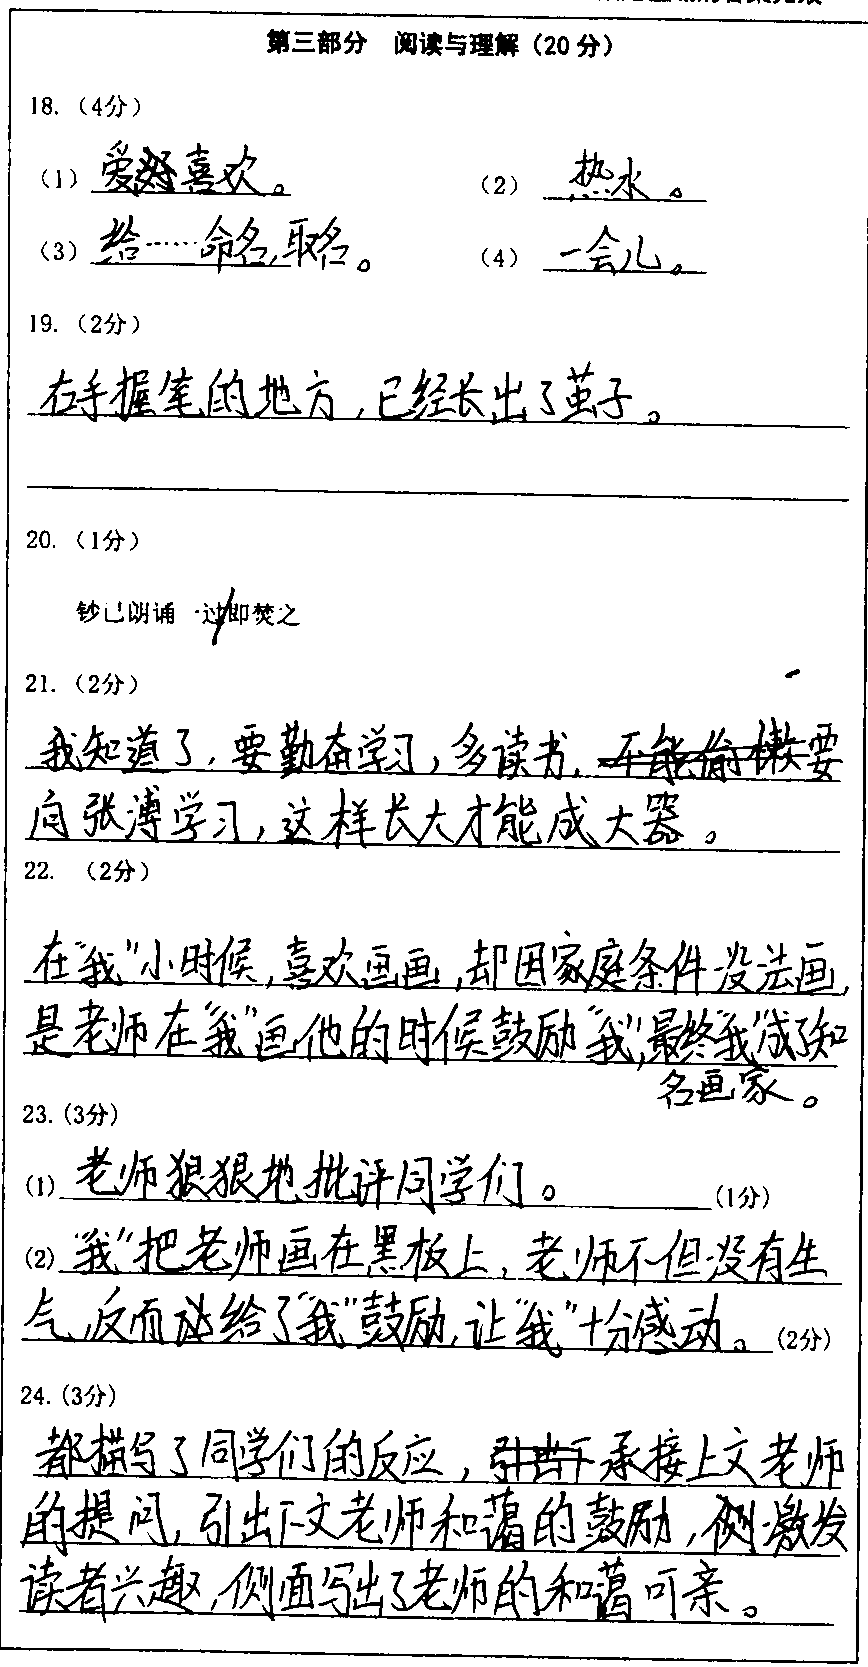 第三部分 阅读与理解（20分）
18.（4分）
（1）爱好喜欢。 （2）热水。
（3）给……命名,取名。 （4）一会儿。
19.（2分）
右手握笔的地方，已经长出了茧子。
20.（1分）
钞已朗诵一过/即焚之
21.（2分）
我知道了，要勤奋学习，多读书，不能偷懒要
向张溥学习，这样长大才能成大器。
22. （2分）
在“我”小时候，喜欢画画，却因家庭条件没法画，
是老师在“我”画他的时候鼓励“我”，最终“我”成了知
名画家。
23.(3分)
(1) 老师狠狠地批评同学们。 (1分)
(2) “我”把老师画在黑板上，老师不但没有生
气，反而给了“我”鼓励，让“我”十分感动。(2分)
24.(3分)
都描写了同学们的反应，引出下承接上文老师
的提问，引出下文老师和蔼的鼓励，侧激发
读者兴趣，侧面写出了老师的和蔼可亲。